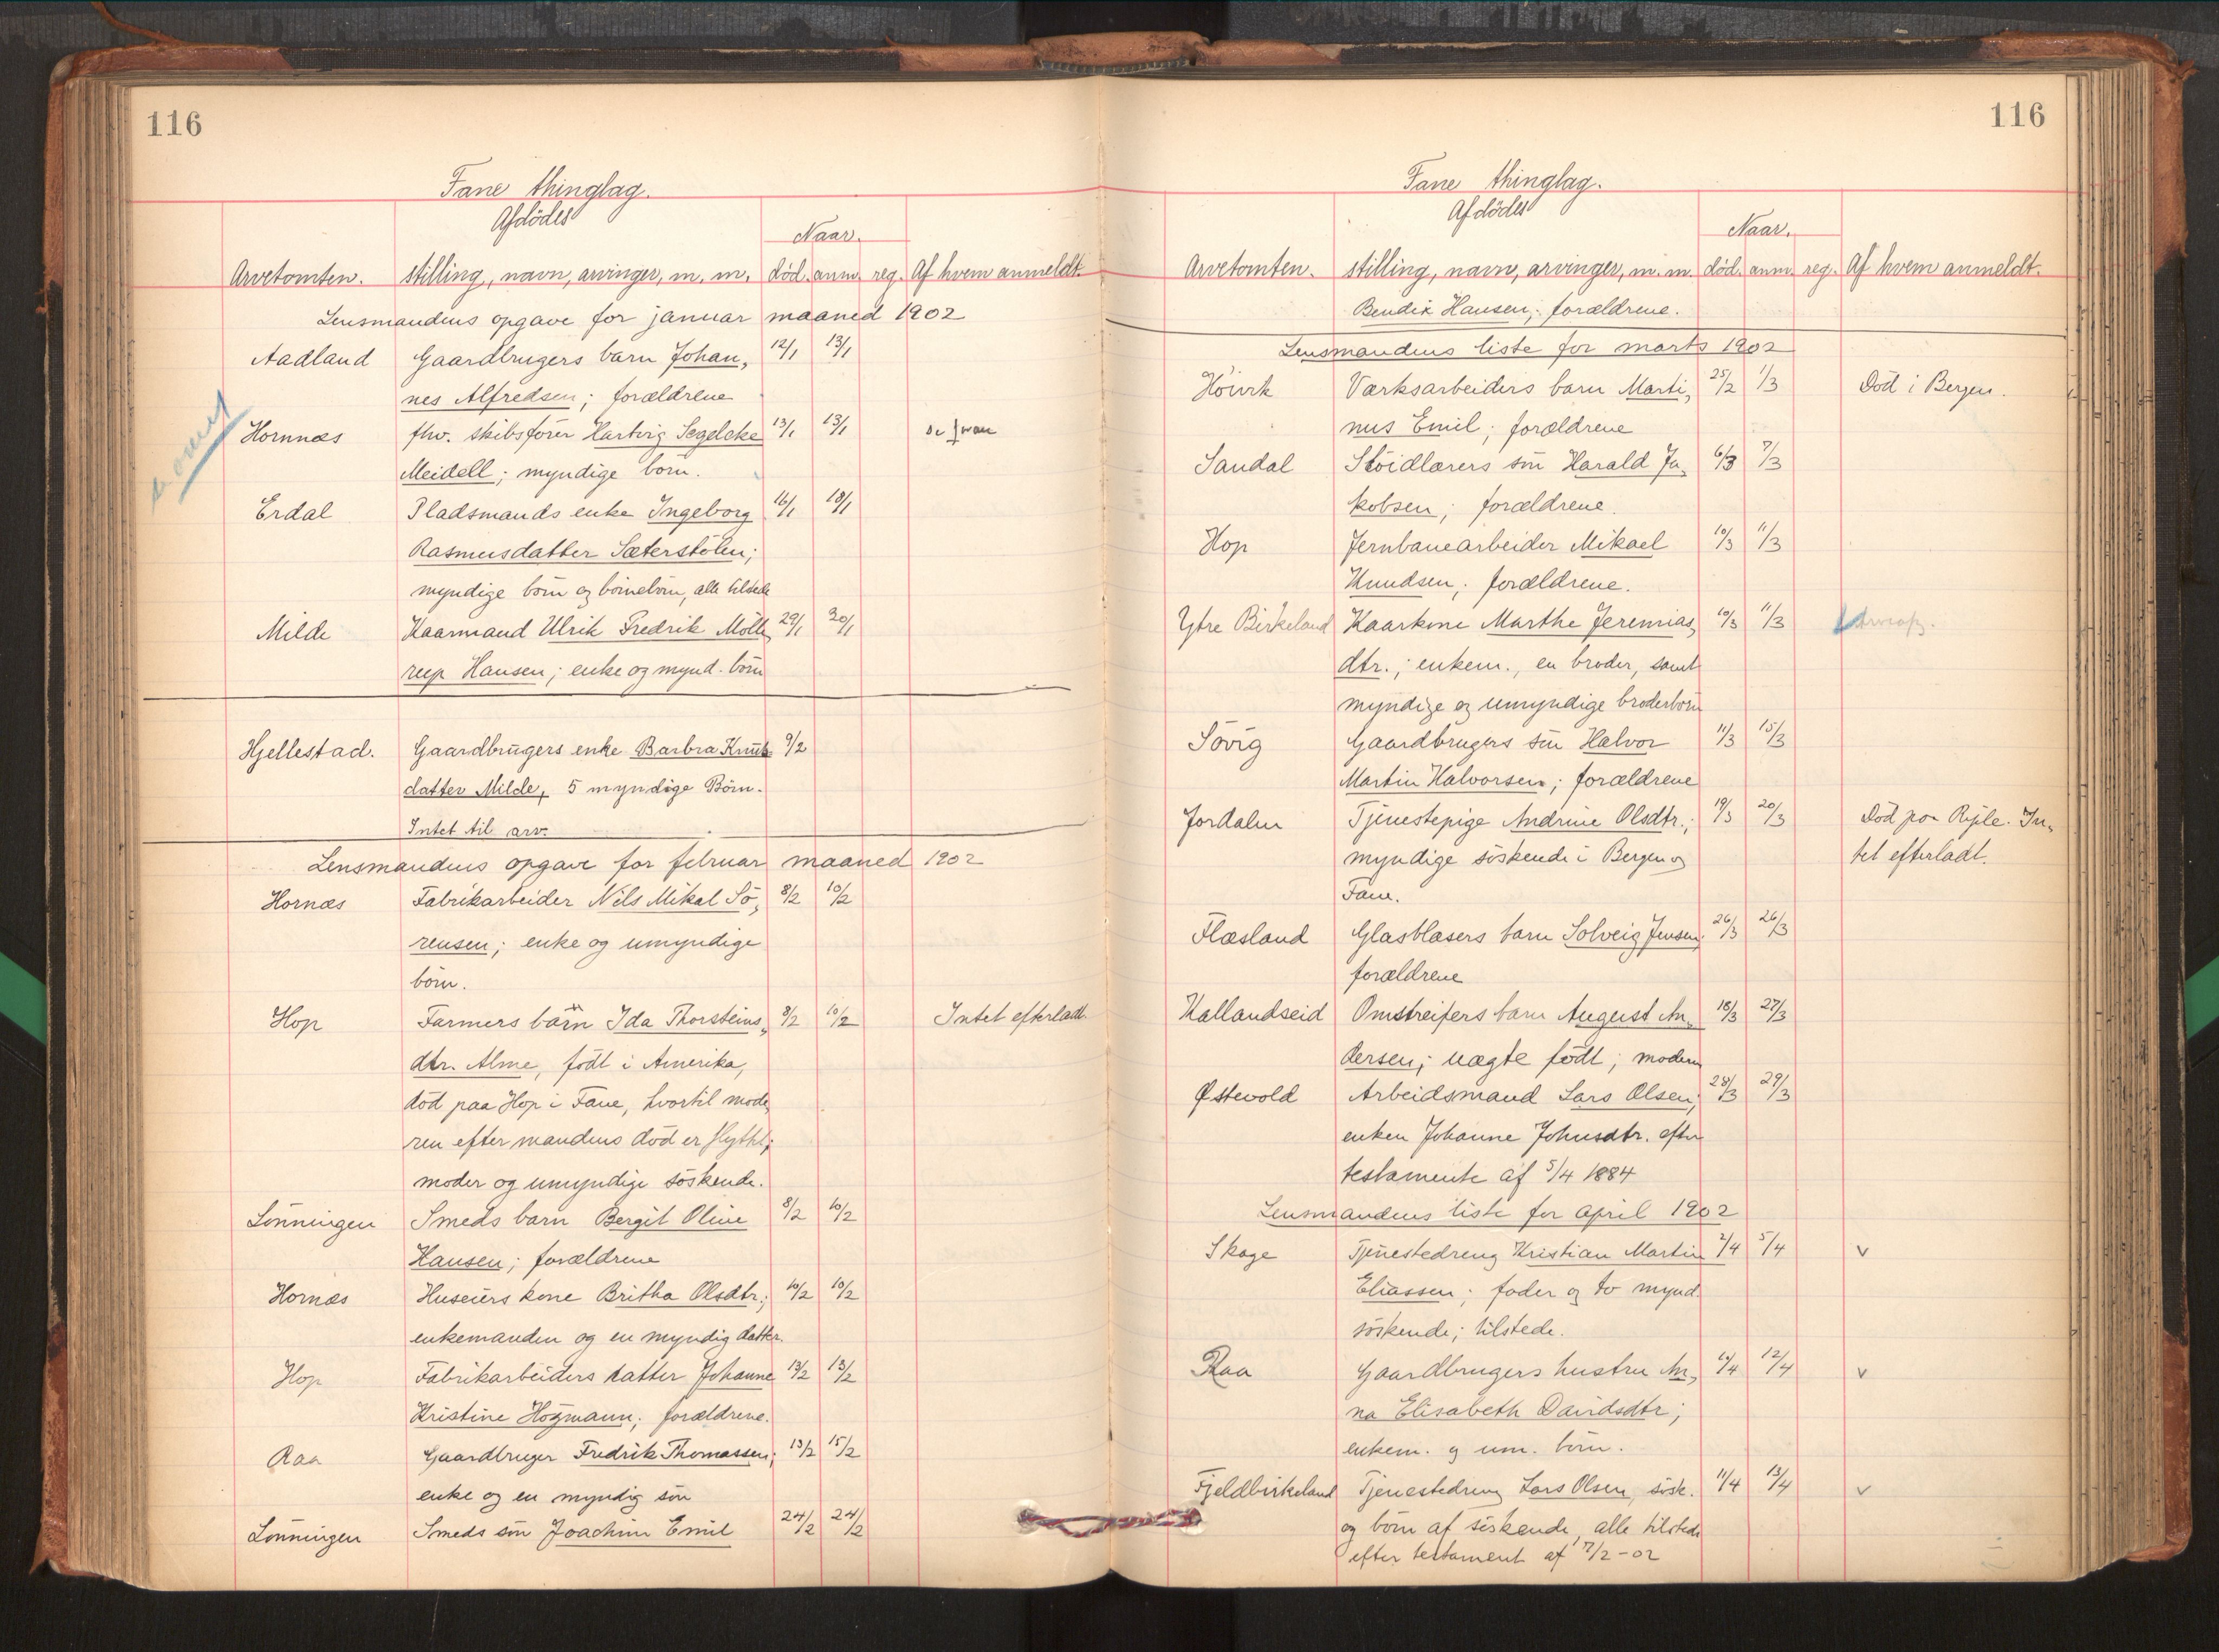 116
Fane thinglag.
Afdödes
Naar.
Arvetomten. stilling, navn, arvinger, m. m. död. anm. reg. Af hvem anmeldt.
Lensmandens opgave for januar maaned 1902
Aadland Gaardbrugers barn Johan„ 12/1 13/1
nes Alfredsen; forældrene
Hornnæs fhv. skibsförer Hartvig Segelcke 13/1 13/1
Meidell; myndige börn.
Erdal Pladsmands enke Ingeborg 16/1 18/1
Rasmusdatter Sæterstölen;
myndige börn og börnebörn, alle tilstede
Milde Kaarmand Ulrik Fredrik Mölle„ 29/1 30/1
reep Hansen; enke og mynd. börn
Hjellestad. Gaardbrugers enke Barbra Knuts 9/2
datter Milde, 5 myndige Börn.
Intet til arv.
Lensmandens opgave for februar maaned 1902
Hornæs Fabrikarbeider Nils Mikal Sö„ 8/2 10/2
rensen; enke og umyndige
börn.
Hop Farmers barn Ida Thorsteins„ 8/2 10/2 Intet efterladt.
dtr. Alme, födt i Amerika,
död paa Hop i Fane, hvortil mode„
ren efter mandens död er flyttet;
moder og umyndige söskende.
Lönningen Smeds barn Bergit Oline 8/2 10/2
Hansen; forældrene
Hornæs Huseiers kone Britha Olsdtr.; 10/2 10/2
enkemanden og en myndig datter.
Hop Fabrikarbeiders datter Johanne 13/2 13/2
Kristine Hogmann; forældrene.
Raa Gaardbruger Fredrik Thomassen; 13/2 15/2
enke og en myndig sön
Lönningen Smeds sön Joachim Emil 24/2 24/2
116
Fane thinglag.
Afdödes
Naar.
Arvetomten. stilling, navn, arvinger, m. m. död. anm. reg. Af hvem anmeldt.
Bendix Hansen; forældrene.
Lensmandens liste for marts 1902
Höivik Værksarbeiders barn Marti„ 25/2 1/3 Död i Bergen.
nus Emil; forældrene
Sandal Slöidlærers sön Harald Ja„ 6/3 7/3
kobsen; forældrene.
Hop Jernbanearbeider Mikael 10/3 11/3
Knudsen; forældrene.
Ytre Birkeland Kaarkone Marthe Jeremias„ 10/3 11/3
dtr.; enkem., en broder, samt
myndige og umyndige broderbörn
Sövig Gaardbrugers sön Halvor 11/3 15/3
Martin Halvorsen; forældrene
Jordalen Tjenestepige Andrine Olsdtr.; 19/3 20/3 Död paa Pleie. In„
myndige söskende i Bergen og tet efterladt.
Fane.
Flæsland Glasblæsers barn Solveig Jensen; 26/3 26/3
forældrene
Kallandseid Omstreifers barn August An„ 18/3 27/3
dersen; uægte födt; moderen
Østevold Arbeidsmand Lars Olsen; 28/3 29/3
enken Johanne Johnsdtr. efter
testamente af 5/4 1884
Lensmandens liste for april 1902
Skage Tjenestedreng Kristian Martin 2/4 5/4 v
Eliassen; fader og to mynd.
söskende; tilstede.
Raa Gaardbrugers hustru An„ 10/4 12/4 v
na Elisabeth Davidsdtr;
enkem. og um. börn.
Fjeldbirkeland Tjenestedreng Lars Olsen, sösk. 11/4 13/4 v
og börn af söskende, alle tilstede
efter testament af 17/2-02